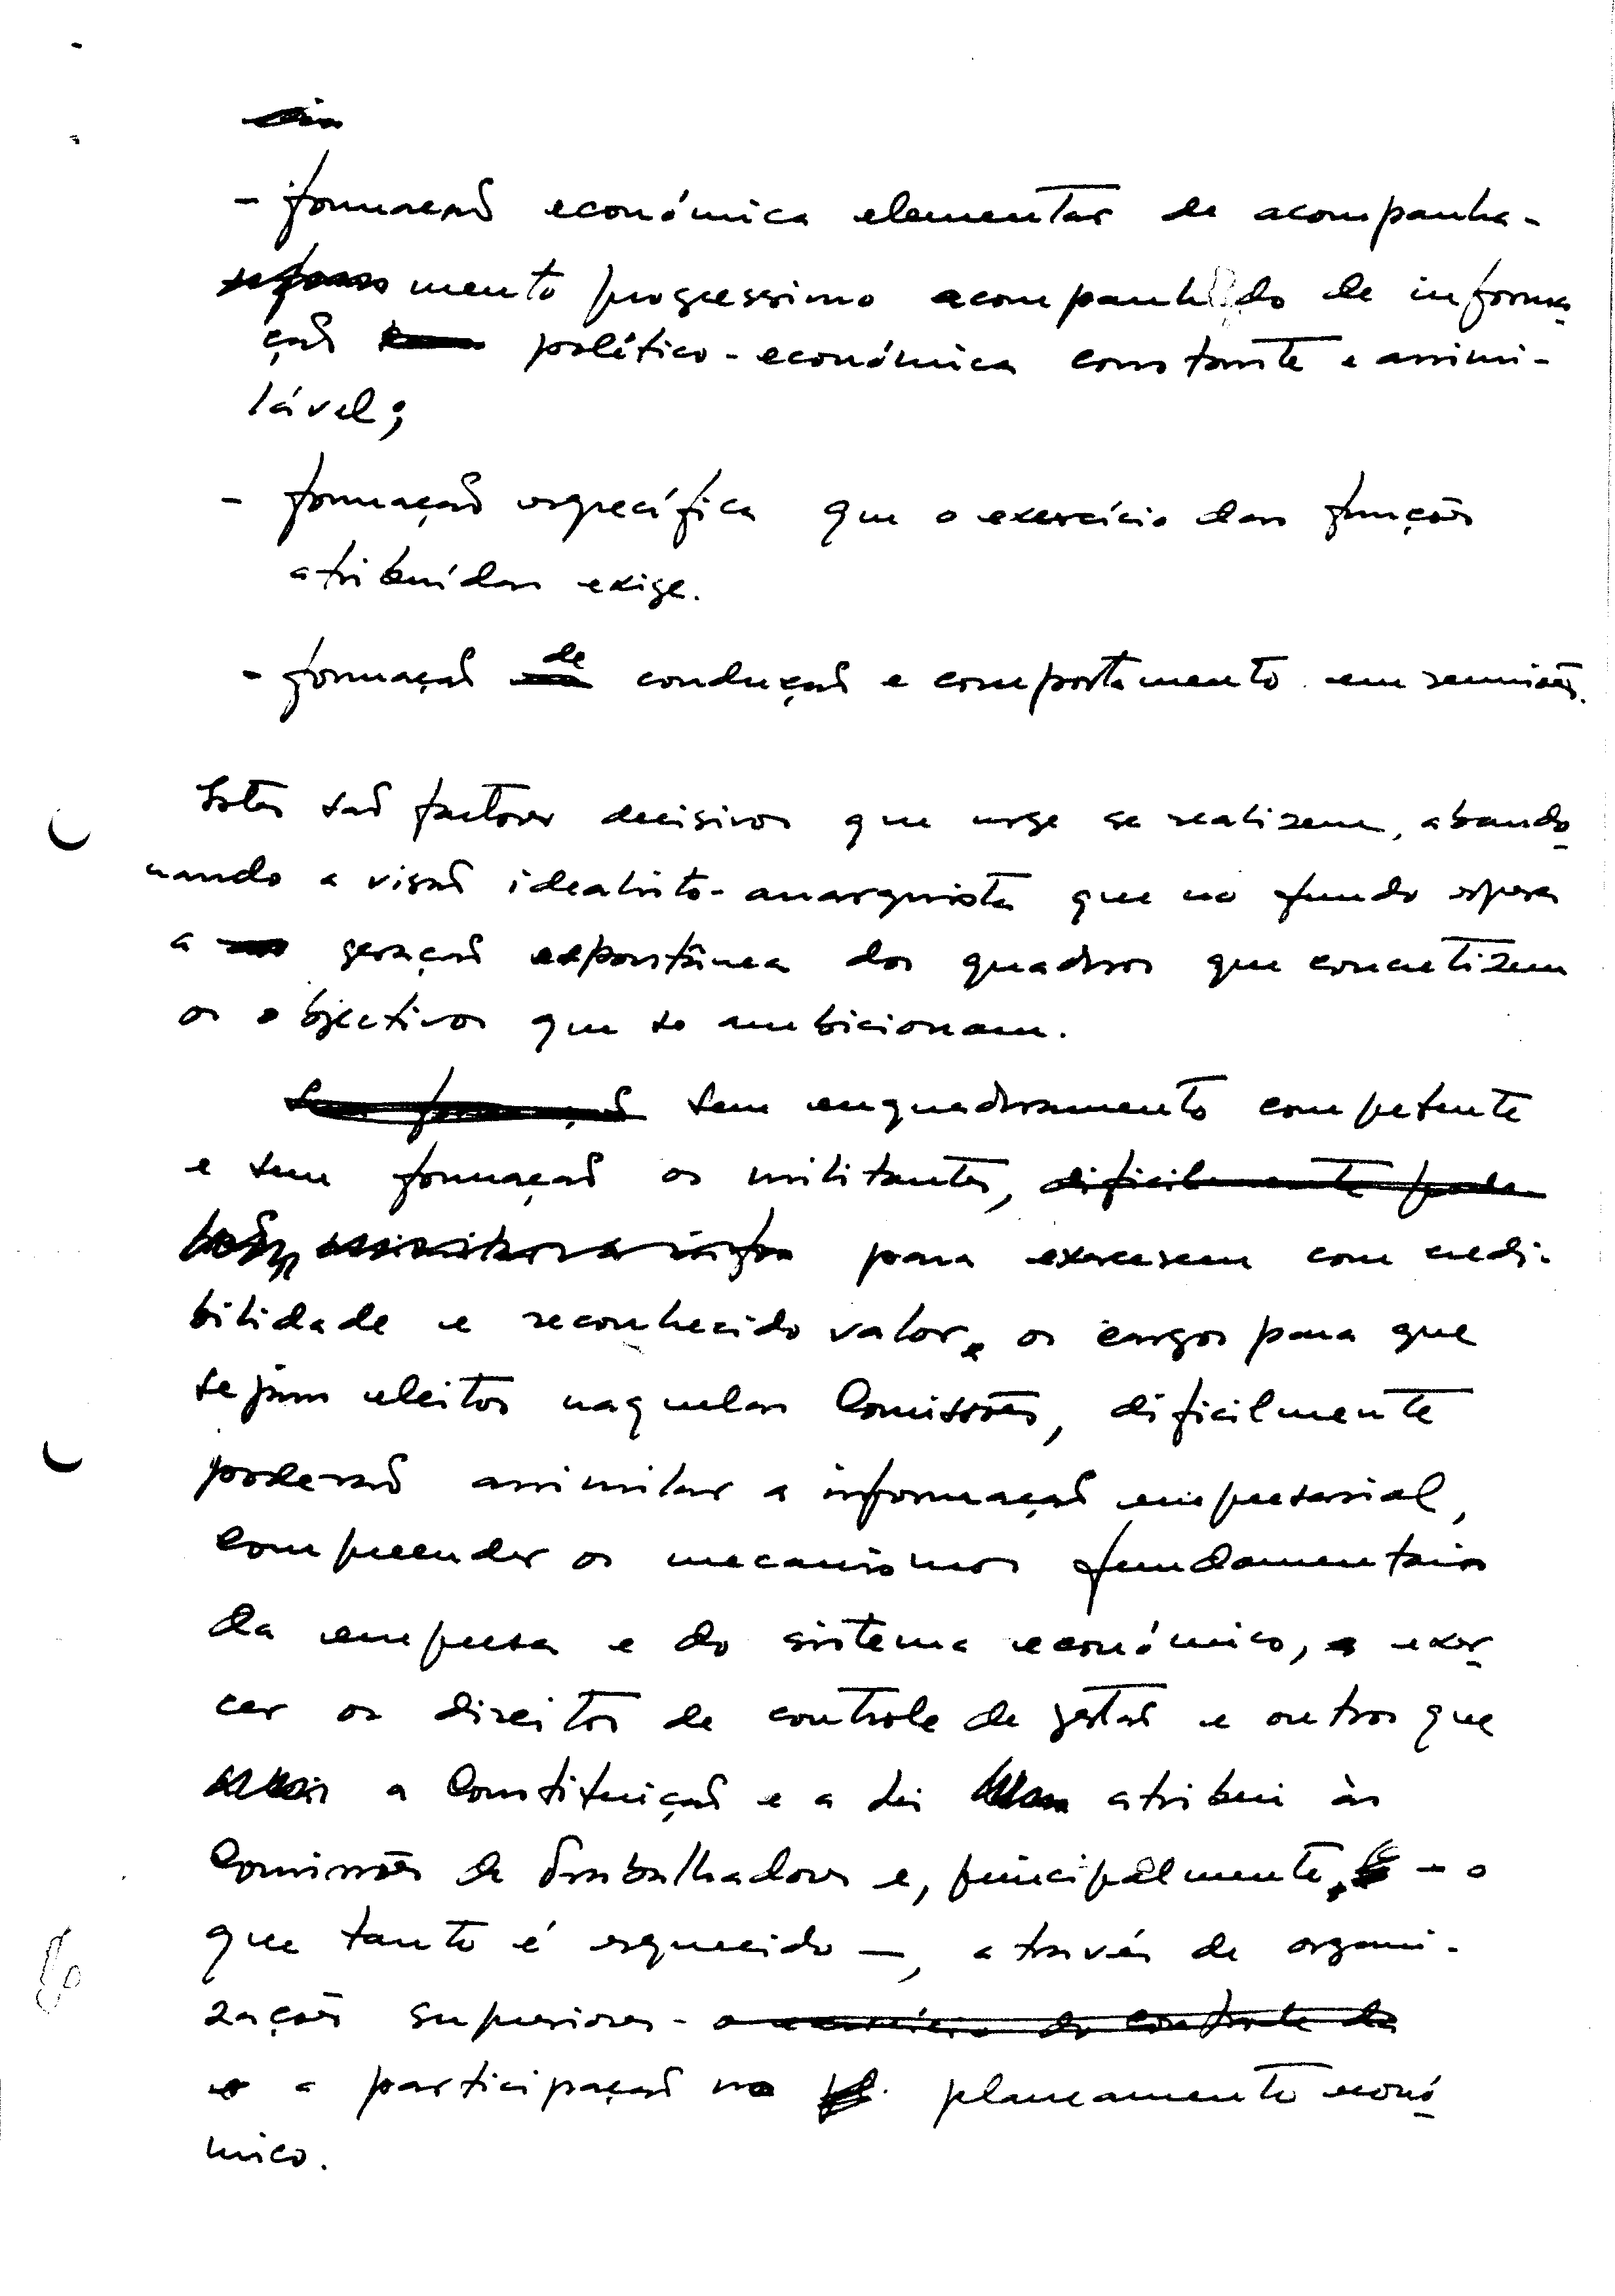 - formação económica elementar de acompanha-
mento progressimo acompanhado de informa-
ção político-económica constante e assimi-
lável;
- formação específica que o exercício das funções
atribuídas exige.
- formação de condução e comportamento em reuniões.
Estes são factores decisivos que urge se realizem, abando-
nando a visão idealisto-anarquista que no fundo espera
a geração espontânea dos quadros que concretizem
os objectivos que se ambicionam.
Sem enquadramento competente
e sem formação os militantes,
para exercerem com credi-
bilidade e reconhecido valor, os cargos para que
sejam eleitos naquelas Comissões, dificilmente
poderão assimilar a informação empresarial,
compreender os mecanismos fundamentais
da empresa e do sistema económico, exer-
cer os direitos de controle de gestão e outros que
a Constituição e a Lei atribui às
Comissões de Trabalhadores e, principalmente, - o
que tanto é esquecido -, através de organi-
zações superiores -
a participação no planeamento econó-
mico.